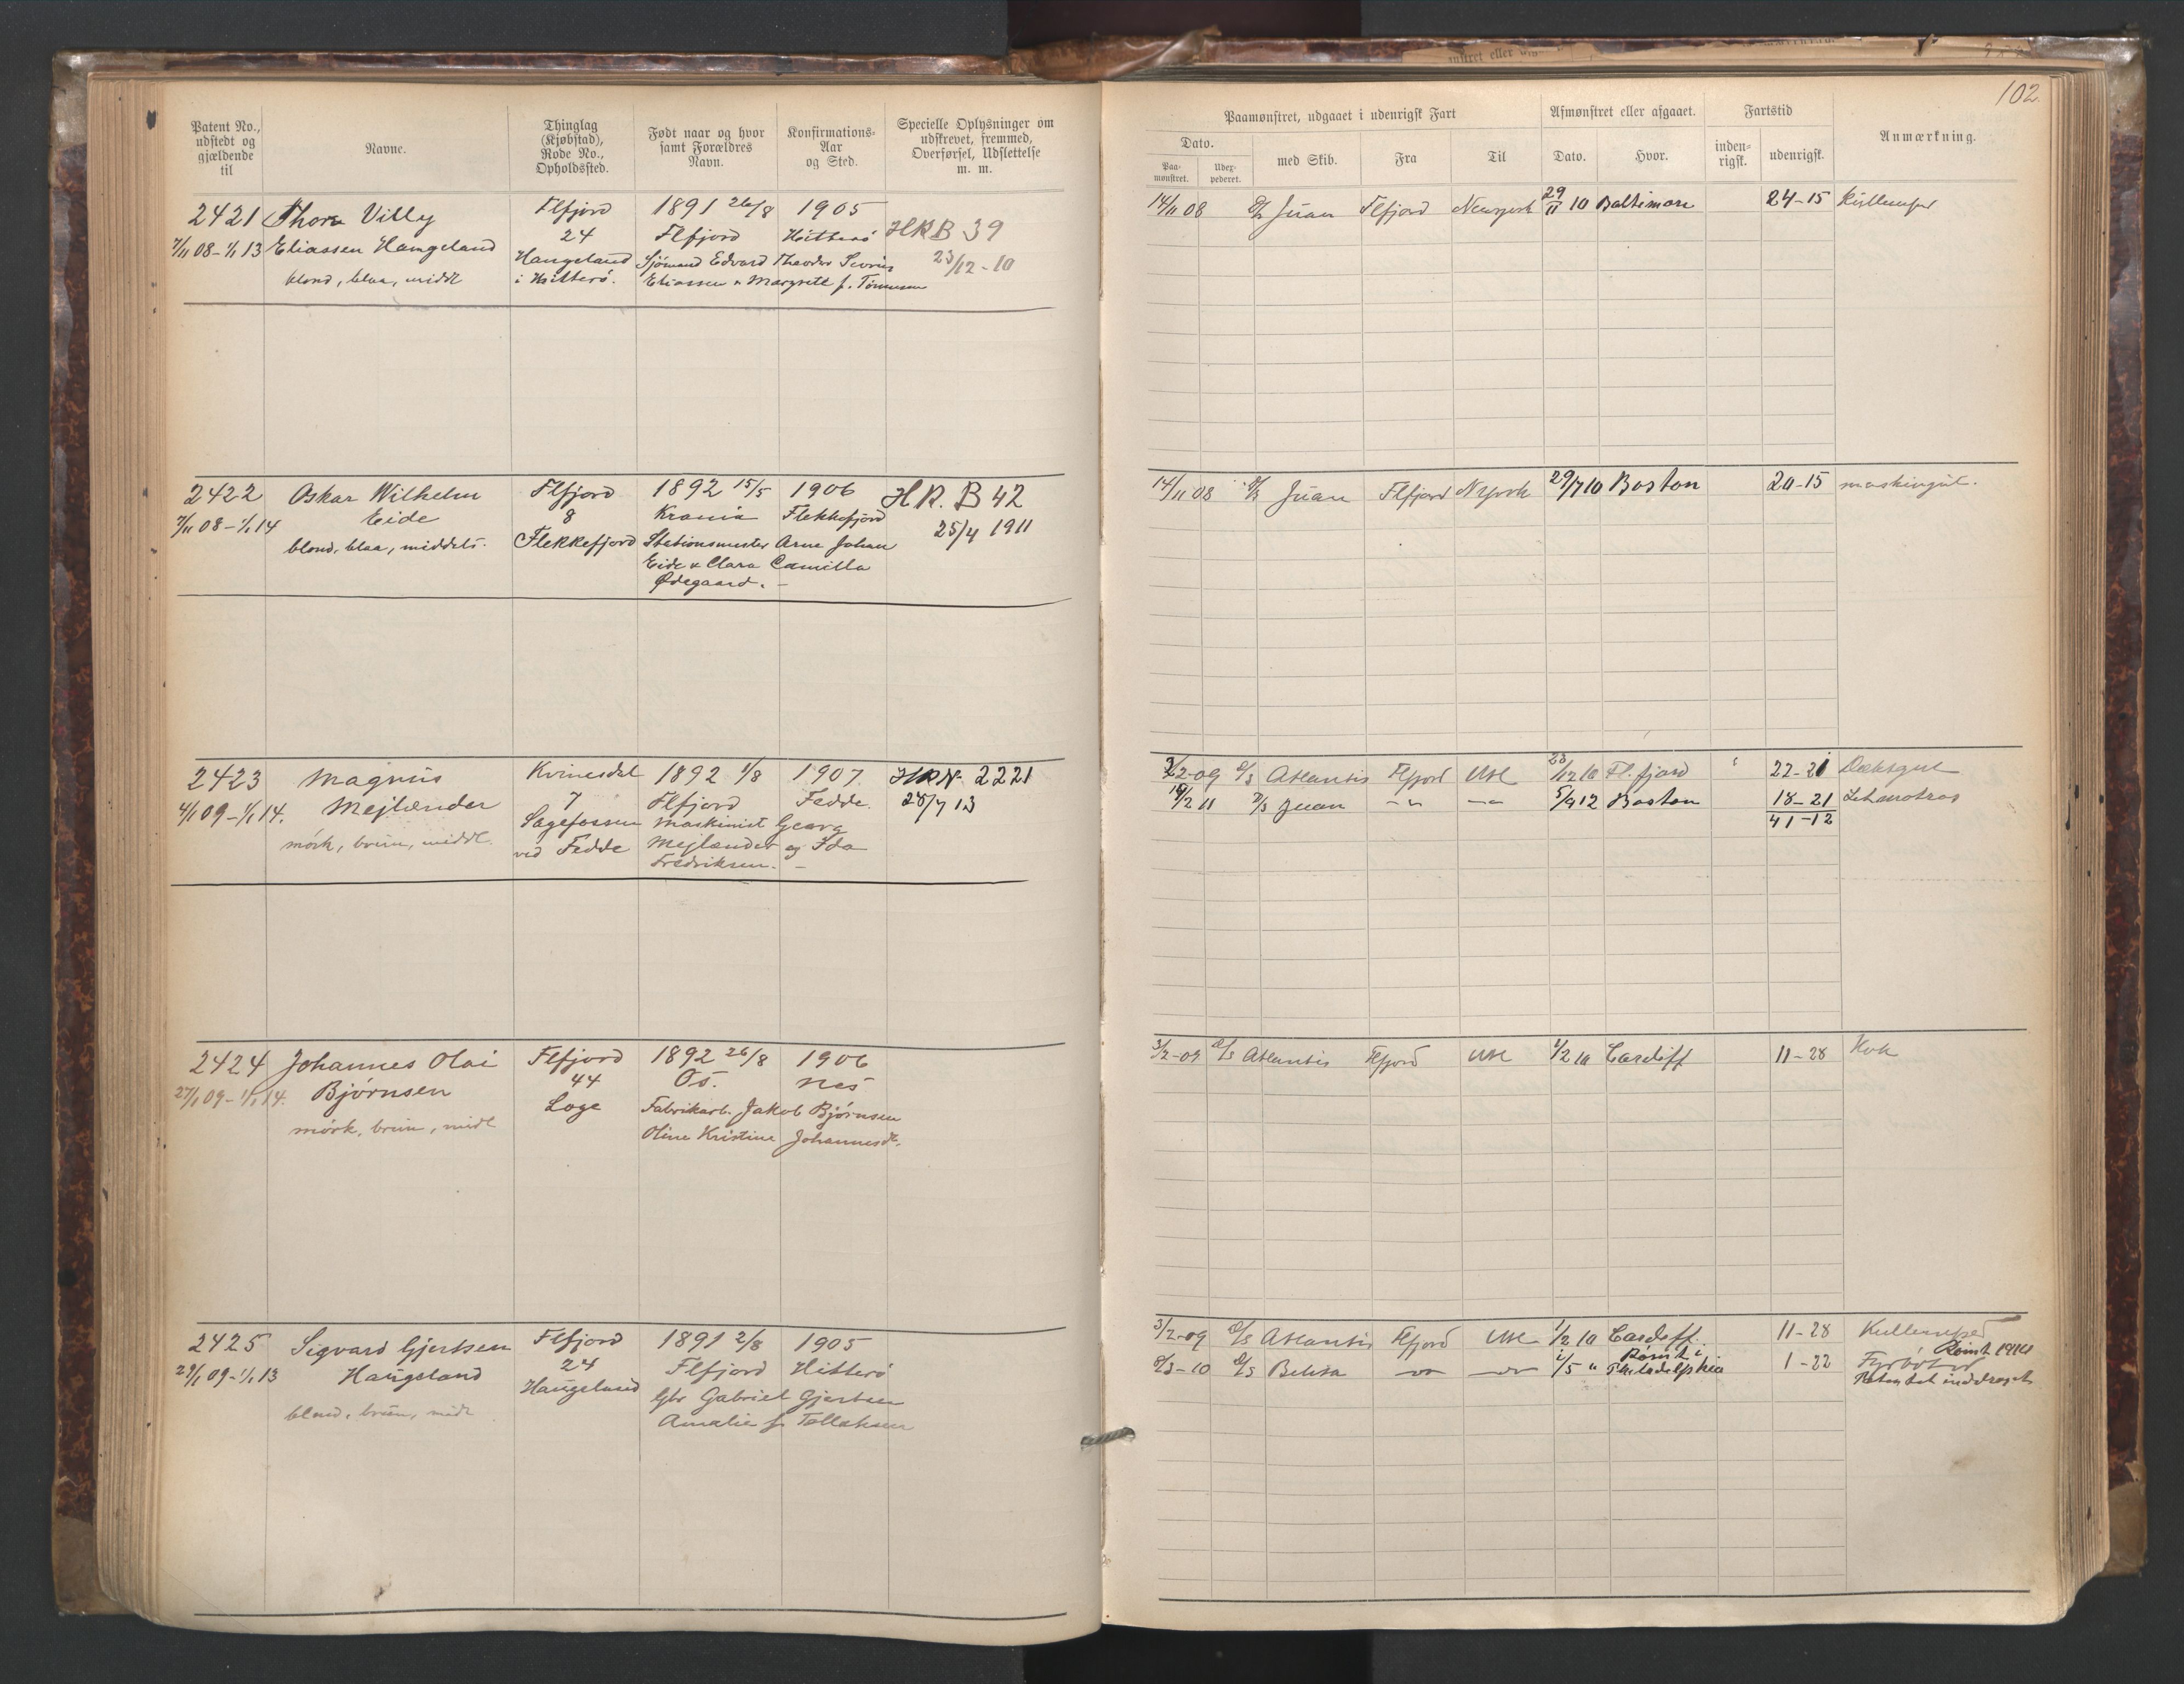 102
Patent No., udstedt og gjældende til
Navne.
Thinglag (Kjøbstad), Rode No., Opholdssted.
Født naar og hvor samt Forældres Navn.
Konfirmations-Aar og Sted.
Specielle Oplysninger om udskrevet, fremmed, Overførsel, Udslettelse m. m.
Paamønstret, udgaaet i udenrigsk Fart
Afmønstret eller afgaaet.
Fartstid
Anmærkning.
Dato.
Paamønstret.
Udexpederet.
med Skib.
Fra
Til
Dato.
Hvor.
indenrigsk.
udenrigsk.
2421 Thor Villy Flfjord 1891 26/8 1905
7/11 08 - 1/1 13 Eliassen Haugeland 24 Flfjord Hitterö HRB 39
Haugeland Sjömand Edvard Theodor 23/12-10
blond, blaa, middl i Hitterö. Eliassen & Margrete f. Tönnessen
14/11 08 D/S Juan Flfjord Newyork 29/11 10 Baltimore 24-15
2422 Oskar Wilhelm Flfjord 1892 15/5 1906 HR. B 42
7/11 08 - 1/1 14 Eide 8 Krania Flekkefjord 25/4 1911
blond, blaa, middels. Flekkefjord Stationsmester Arne Johan
Eide & Clara Camilla
Ødegaard. -
14/11 08 D/S Juan Flfjord N.york 29/7 10 Boston 20-15 maskingut.
2423 Magnus Kvinesdal 1892 1/8 1907 HRN. 2221
4/1 09 - 1/1 14. Mejlænder 7 Flfjord Fedde. 28/7 13
Sagefossen Maskinist Georg
mörk, brun, middl. ved Fedde Mejlænder og Ida
Fredriksen. -
3/2-09 D/S Atlantis Flfjord Utl 28/12 10 Fl.fjord 22-21 Dæksgut
18/2 11 D/S Juan -"- -"- 5/9 12 Boston 18-21 Letmatros
41-12
2424 Johannes Olai Flfjord 1892 26/8 1906
27/1 09 - 1/1 14. Bjørnsen 44 Os. Nes
Loge Fabrikarb. Jakob Bjørnsen
mörk, brun, midl Oline Kristine Johannesdt.
3/2-09 D/S Atlantis Flfjord Utl 1/2 10 Cardiff 11-28 Kok
2425 Sigvard Gjertsen Flfjord 1891 2/8 1905
29/1 09 - 1/1 13 Haugeland 24 Flfjord Hitterö
Haugeland Gbr Gabriel Gjertsen
blond, brun, midl Amalie f. Tollaksen
3/2-09 D/S Atlantis Flfjord Utl 1/2 10 Cardiff. 11-28 Kullemper
Römt i Römt 1910
D/S Belita -"- -"- 1/5 " Philadelphia 1-22 Fyrböter
Patentet inddraget